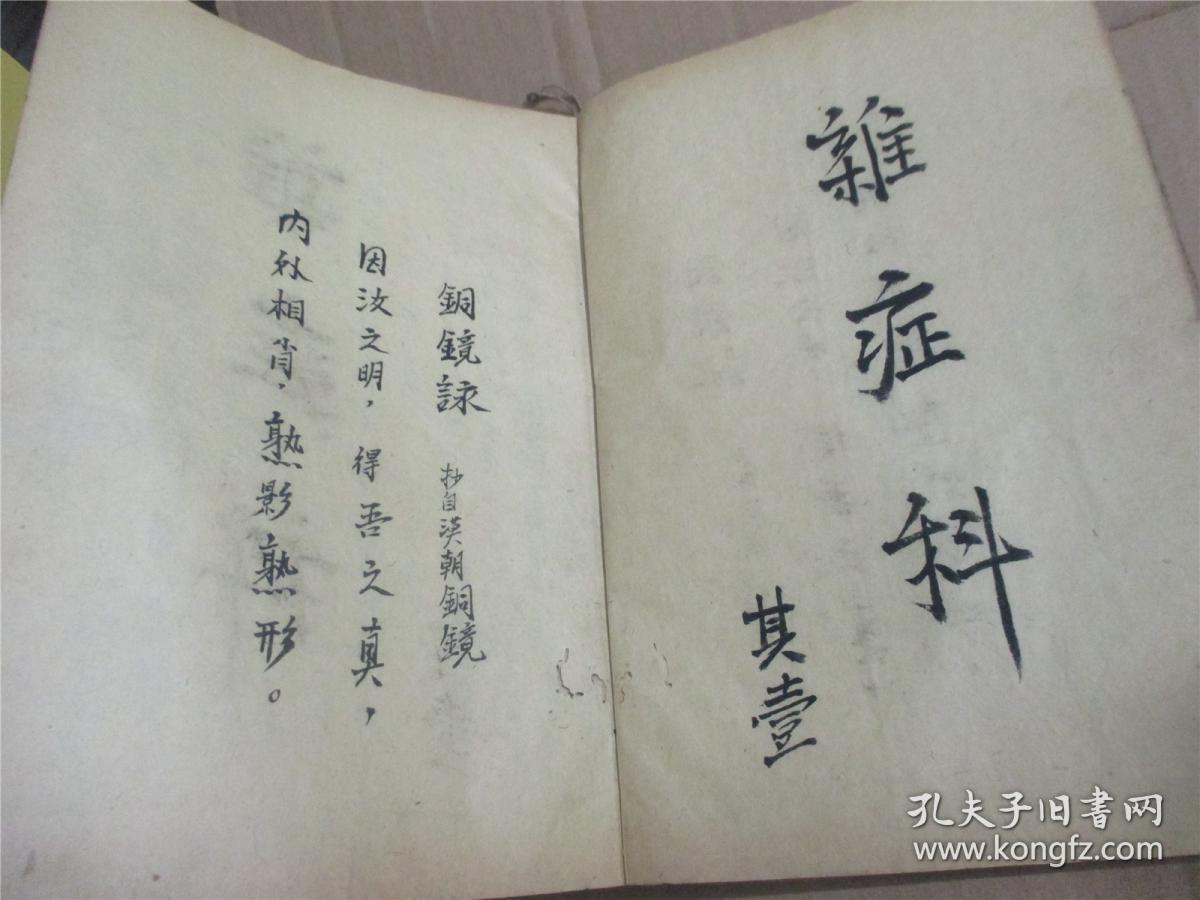 雜症科
其壹
銅鏡詠 抄自漢朝銅鏡
因汝之明，得吾之真，
内外相肖，熟影熟形。
孔夫子旧書网
www.kongfz.com